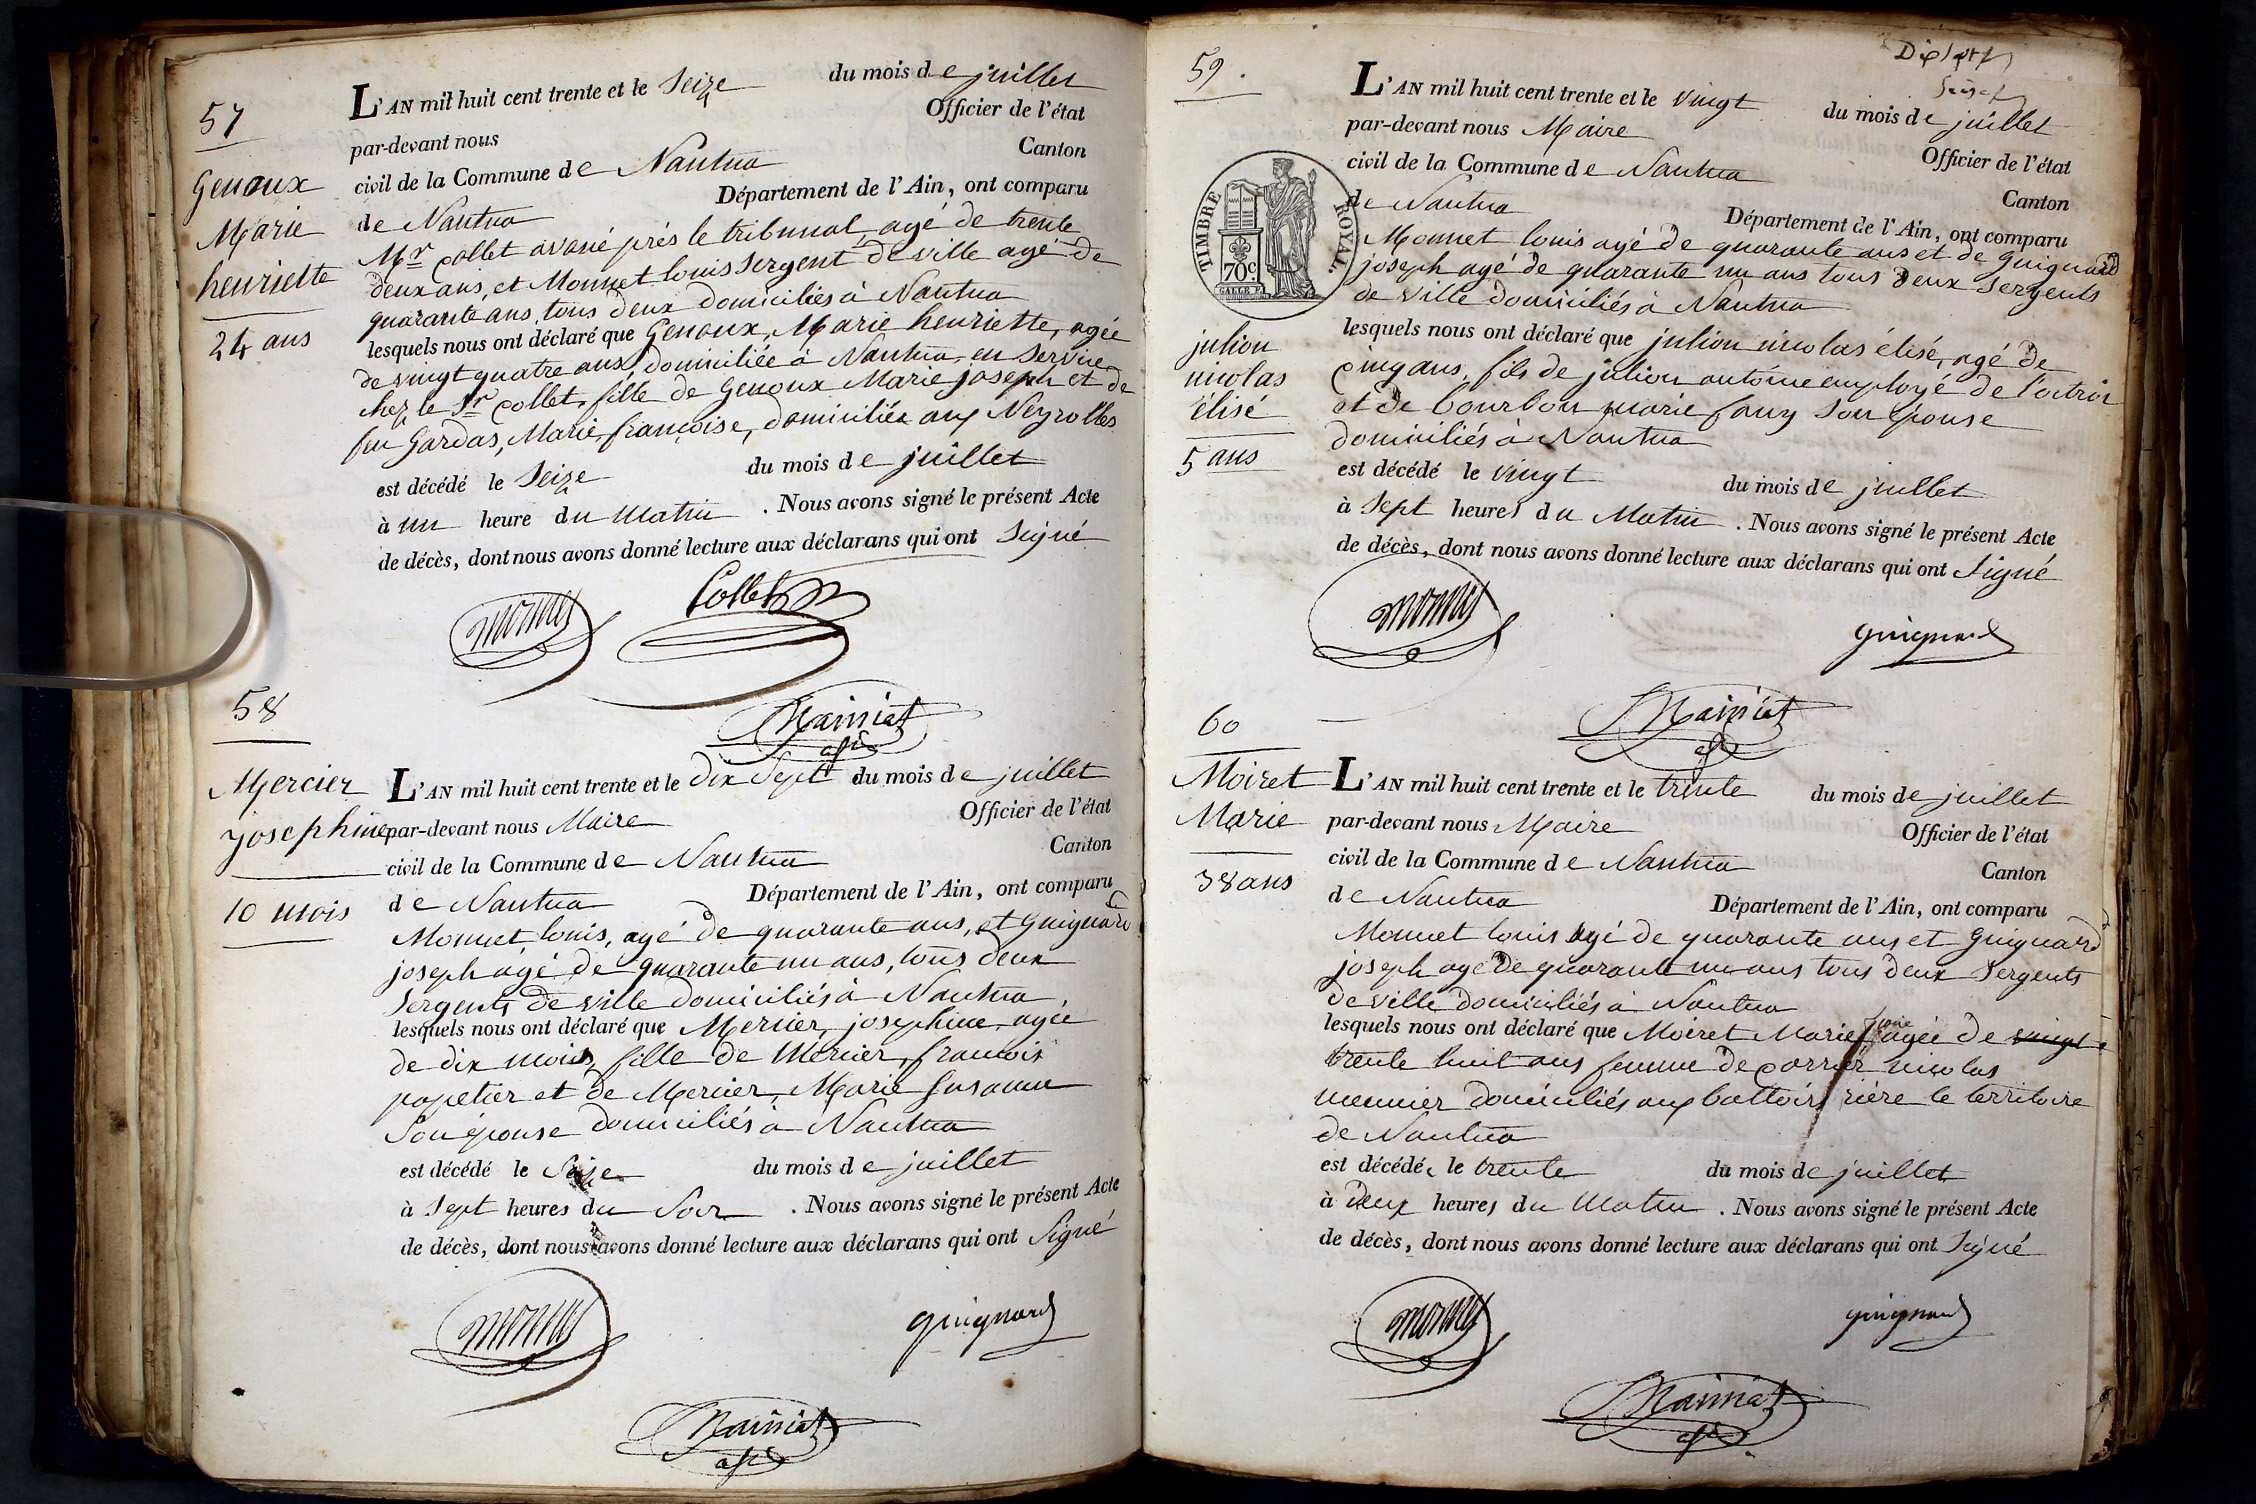 57
Genoux
Marie
henriette
24 ans
L'AN mil huit cent trente et le Seize du mois de juillet
par-devant nous Officier de l'état
civil de la Commune de Nantua Canton
de Nantua Département de l'Ain, ont comparu
Mr collet avoué près le tribunal, agé de trente
deux ans, et Monnet louis Sergent de ville agé de
quarante ans, tous deux domiciliés à Nantua
lesquels nous ont déclaré que Genoux, Marie henriette, agée
de vingt quatre ans, domiciliée à Nantua, en service
chez le Sr collet, fille de Genoux Marie joseph et de
feu Gardas, Marie, françoise, domiciliés aux Neyrolles
est décédé le Seize du mois de juillet
à un heure du Matin . Nous avons signé le présent Acte
de décès, dont nous avons donné lecture aux déclarans qui ont Signé
monnet Collet
Mainiat
adj
58
Mercier
josephine
10 mois
L'AN mil huit cent trente et le dix Sept du mois de juillet
par-devant nous Maire Officier de l'état
civil de la Commune de Nantua Canton
de Nantua Département de l'Ain, ont comparu
Monnet, louis, agé de quarante ans, et Guignard
joseph agé de quarante un ans, tous deux
Sergents de ville domiciliés à Nantua,
lesquels nous ont déclaré que Mercier, josephine, agée
de dix mois, fille de Mercier, francois
papetier et de Mercier, Marie Susanne
Son épouse domiciliés à Nantua
est décédé le Seize du mois de juillet
à Sept heures du Soir . Nous avons signé le présent Acte
de décès, dont nous avons donné lecture aux déclarans qui ont Signé
monnet guignard
Mainiat
adj
59.
TIMBRE ROYAL.
70c
julion
nicolas
élisé
5 ans
L'AN mil huit cent trente et le vingt du mois de juillet
par-devant nous Maire Officier de l'état
civil de la Commune de Nantua Canton
de Nantua Département de l'Ain, ont comparu
Monnet louis agé de quarante ans et de Guignard
joseph agé de quarante un ans tous deux Sergents
de ville domiciliés à Nantua
lesquels nous ont déclaré que julion nicolas élisé, agé de
cinq ans, fils de julion antoine employé de l'octroi
et de bourbon marie fany Son épouse
domiciliés à Nantua
est décédé le vingt du mois de juillet
à Sept heures du Matin . Nous avons signé le présent Acte
de décès, dont nous avons donné lecture aux déclarans qui ont Signé
monnet guignard
Mainiat
adj
60
Moiret
Marie
38 ans
L'AN mil huit cent trente et le trente du mois de juillet
par-devant nous Maire Officier de l'état
civil de la Commune de Nantua Canton
de Nantua Département de l'Ain, ont comparu
Monnet louis agé de quarante ans et Guignard
joseph agé de quarante un ans tous deux Sergents
de ville domiciliés à Nantua
lesquels nous ont déclaré que Moiret Marie agée de vingt
trente huit ans femme de carrier nicolas
meunier domiciliés aux battoirs rière le territoire
de Nantua
est décédée le trente du mois de juillet
à deux heures du Matin . Nous avons signé le présent Acte
de décès, dont nous avons donné lecture aux déclarans qui ont Signé
monnet guignard
Mainiat
adj